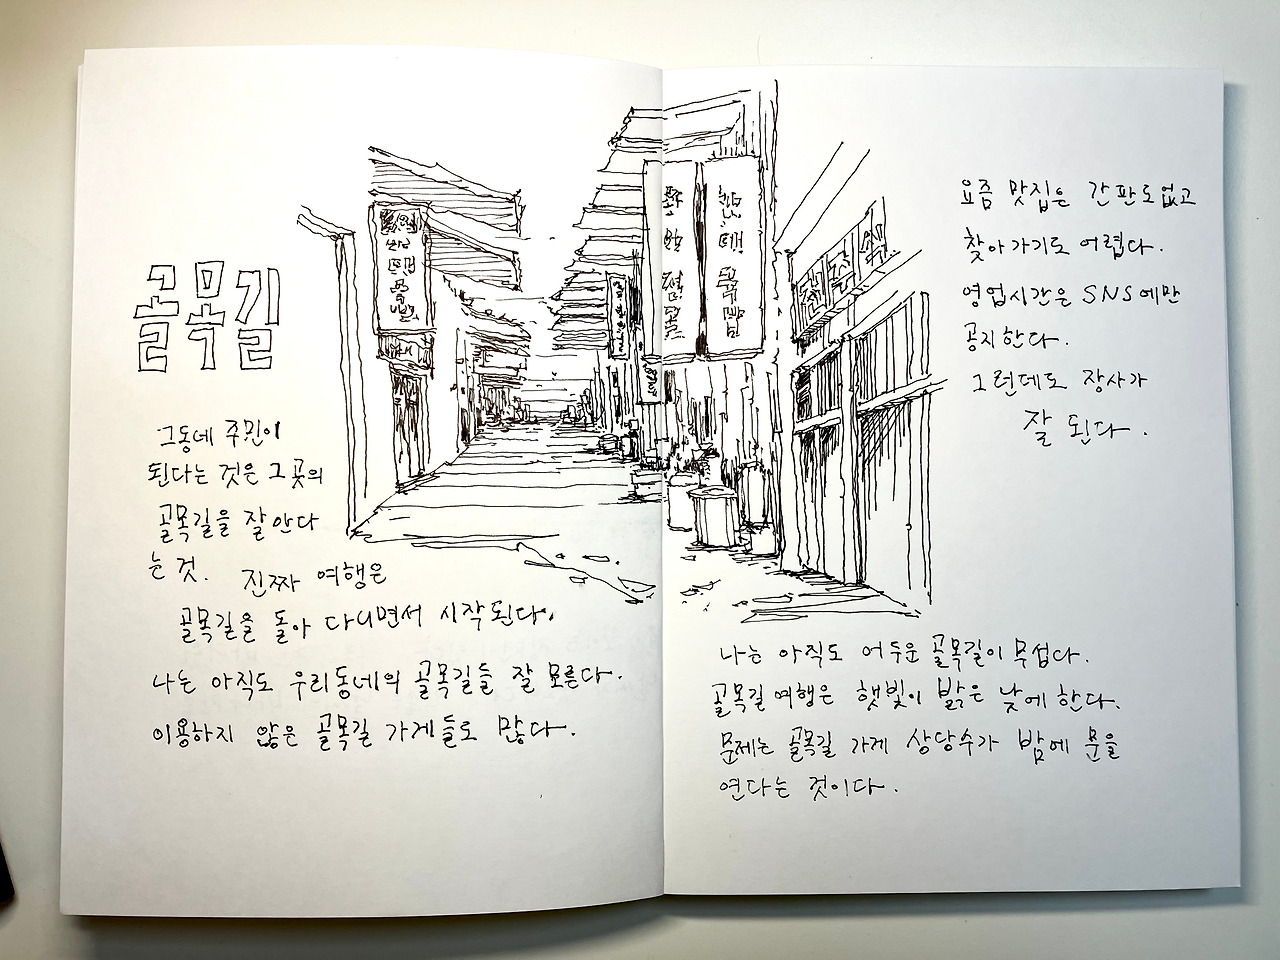 골목길
그동네 주민이
된다는 것은 그 곳의
골목길을 잘 안다
는 것. 진짜 여행은
골목길을 돌아 다니면서 시작된다.
나는 아직도 우리동네의 골목길들 잘 모른다.
이용하지 않은 골목길 가게들도 많다.
요즘 맛집은 간판도없고
찾아가기도 어렵다.
영업시간은 SNS에만
공지한다.
그런데도 장사가
잘 된다.
나는 아직도 어두운 골목길이 무섭다.
골목길 여행은 햇빛이 밝은 낮에 한다.
문제는 골목길 가게 상당수가 밤에 문을
연다는 것이다.